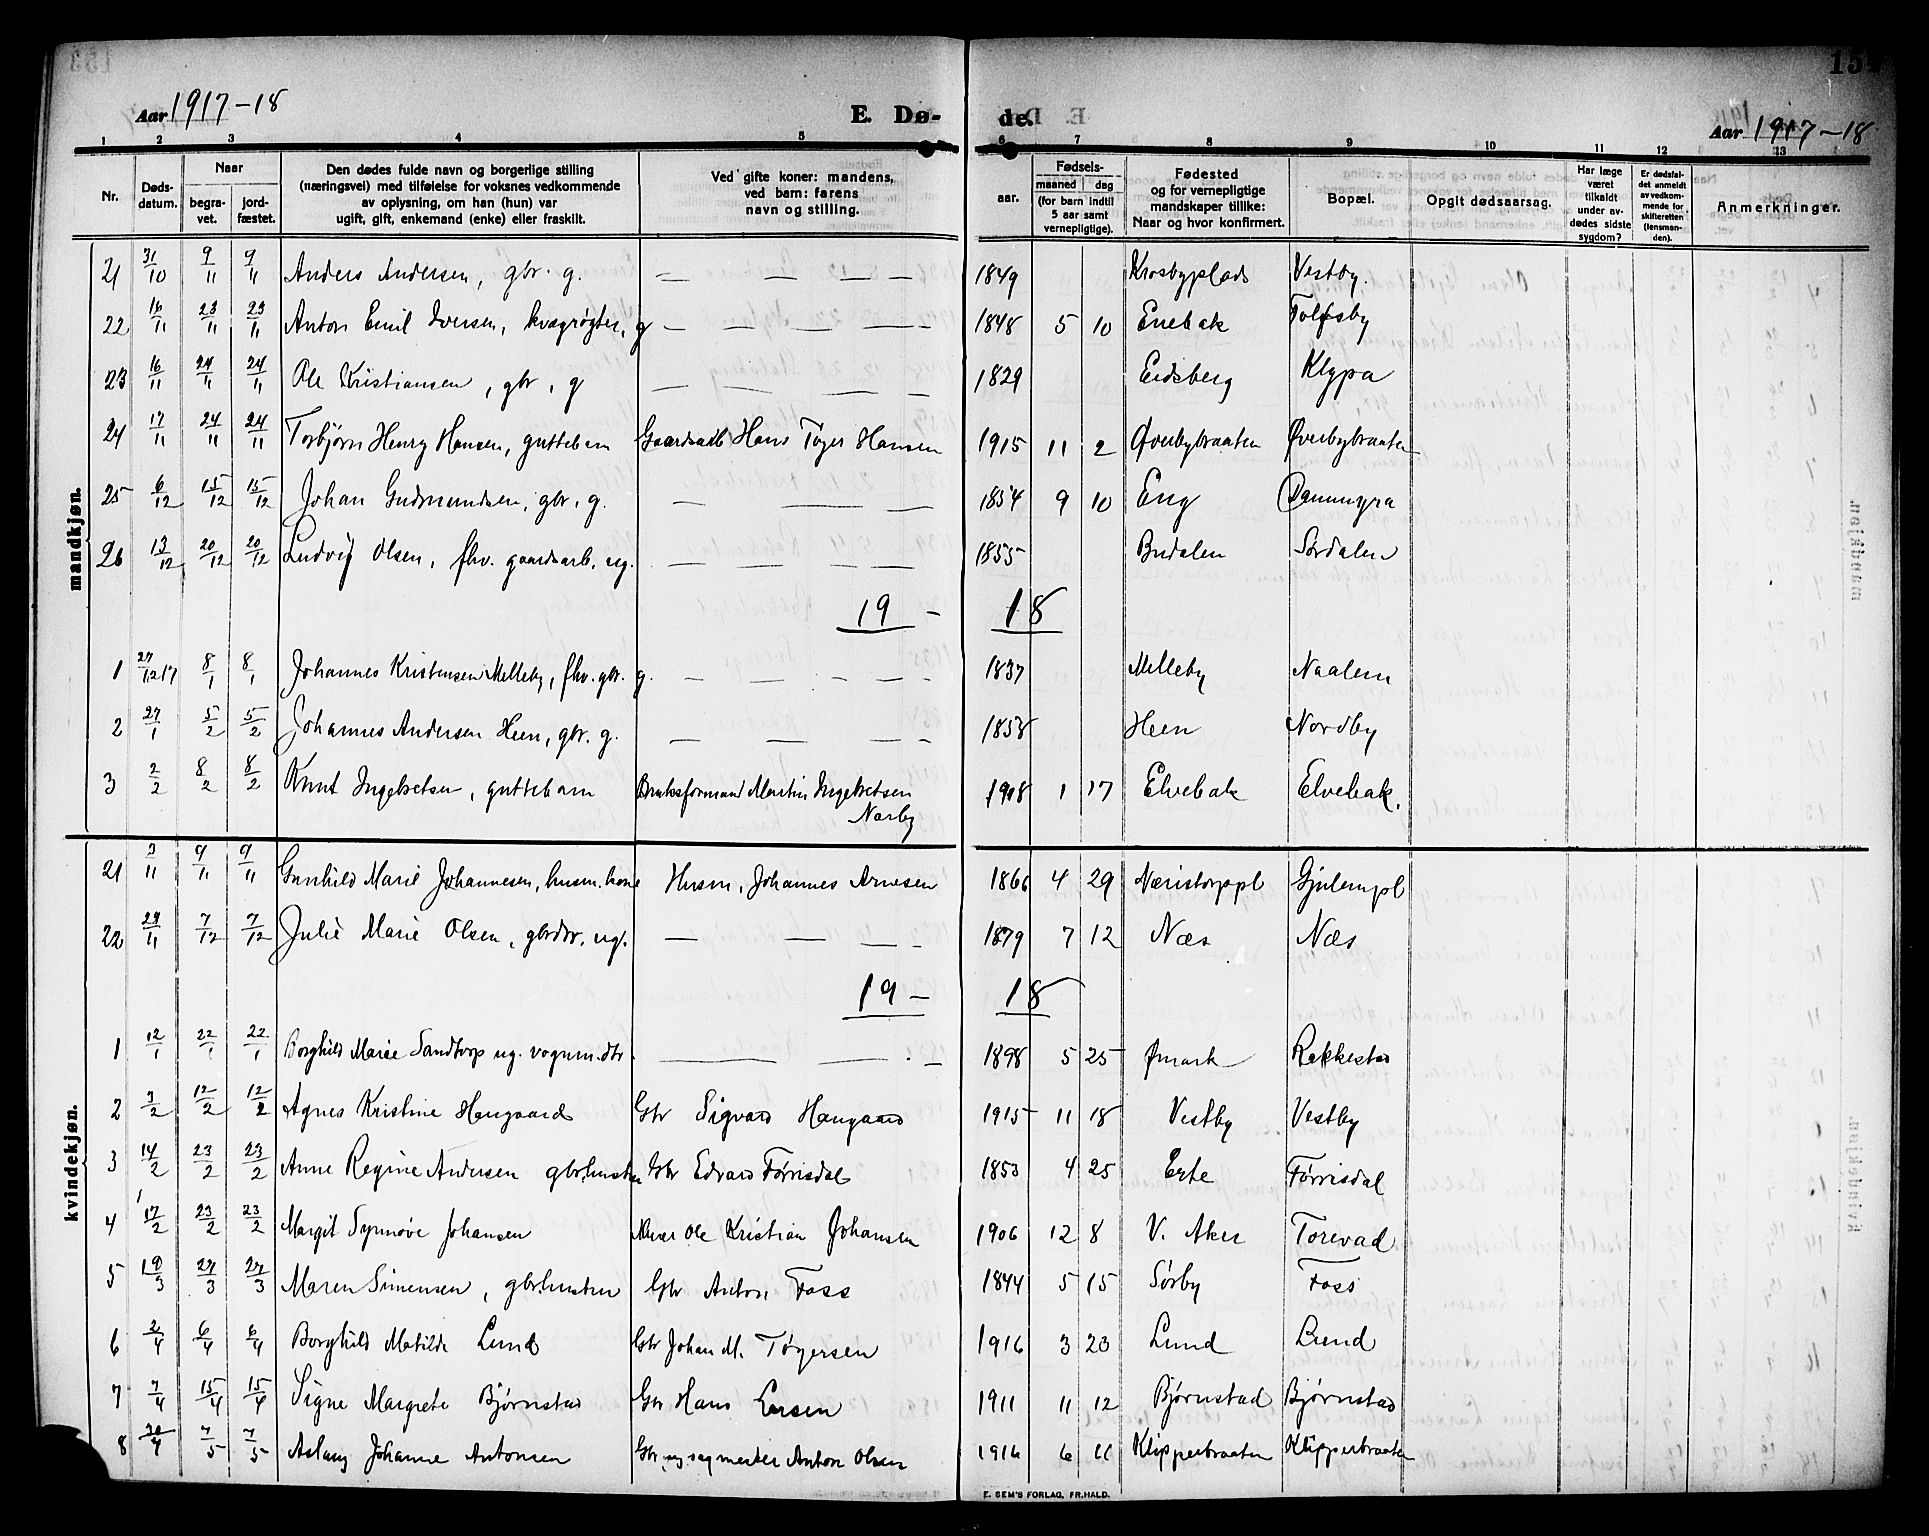 Aar 1917-18
E. Dø-
de.
154
Aar 1917-18
1 2 3 4 5 6 7 8 9 10 11 12 13
Nr.
Døds-datum.
Naar
begra-vet.
jord-fæstet.
Den dødes fulde navn og borgerlige stilling
(næringsvei) med tilføielse for voksnes vedkommende
av oplysning, om han (hun) var
ugift, gift, enkemand (enke) eller fraskilt.
Ved gifte koner: mandens,
ved barn: farens
navn og stilling.
aar.
Fødsels-
maaned dag
(for barn indtil
5 aar samt
vernepligtige).
Fødested
og for vernepligtige
mandskaper tillike:
Naar og hvor konfirmert.
Bopæl.
Opgit dødsaarsag.
Har læge
været
tilkaldt
under av-
dødes sidste
sygdom?
Er dødsfal-
det anmeldt
av vedkom-
mende for
skifteretten
(lensman-
den).
Anmerkninger.
mandkjøn.
21 31/10 9/11 9/11 Anders Andersen, gbr. g. — — — — 1849 Krosbyplads Vestby.
22 16/11 23/11 23/11 Anton Emil Iversen, kvægrøgter, g — — — — 1848 5 10 Enebak Tolfsby
23 16/11 24/11 24/11 Ole Kristiansen, gbr, g — — — — 1829 Eidsberg Klypa
24 17/11 24/11 24/11 Torbjørn Henry Hansen, guttebarn Gaardsarb Hans Tøger Hansen 1915 11 2 Øverbybraaten Øverbybraaten
25 6/12 15/12 15/12 Johan Gudmundsen, gbr. g. — — — 1854 9 10 Eng Dammyra
26 13/12 20/12 20/12 Ludvig Olsen, fhv. gaardsarb. ug. — — — — 1855 Budalen Sørdalen
19 - 18
1 27/12 17 8/1 8/1 Johannes Kristensen Melleby, fhv. gbr. g. — — — — 1837 Melleby Naalem
2 27/1 5/2 5/2 Johannes Andersen Heen, gbr. g. — — — — 1858 Heen Nordby
3 2/2 8/2 8/2 Knut Ingebretsen, guttebarn Bruksformand Martin Ingebretsen 1918 1 17 Elvebak Elvebak.
Narby
kvindekjøn.
21 3/11 9/11 9/11 Gunhild Marie Johannesen, husm. kone Husm, Johannes Arnesen 1866 4 29 Næristorppl Gjulempl
22 29/11 7/12 7/12 Julie Marie Olsen, gbrdtr. ug. — — — — 1879 7 12 Næs Næs
19 - 18
1 12/1 22/1 22/1 Borghild Marie Sandtorp ug. vognm.dtr. — — — 1898 5 25 Ømark Rakkestad
2 3/2 12/2 12/2 Agnes Kristine Haugaard Gbr Sigvard Haugaard 1915 11 18 Vestby Vestby
3 14/2 23/2 23/2 Anne Regine Andersen gbr.hustru Gbr Edvard Førrisdal 1853 4 25 Erte Førrisdal
4 17/2 23/2 23/2 Margit Synnøve Johansen Ole Kristian Johansen 1906 12 8 V. Aker Torevad
5 19/3 27/3 27/3 Maren Simensen, gbr.hustru Gbr Anton Foss 1844 5 15 Sørby Foss
6 2/4 6/4 6/4 Borghild Matilde Lund Gbr Johan M. Tøgersen 1916 3 23 Lund Lund
7 7/4 15/4 15/4 Signe Margrete Bjørnstad Gbr Hans Larsen 1911 11 12 Bjørnstad Bjørnstad
8 30/4 7/5 7/5 Aslaug Johanne Antonsen Gbr og sagmester Anton Olsen 1916 6 11 Klipperbraaten Klipperbraaten
E. SEM'S FORLAG, FR.HALD.